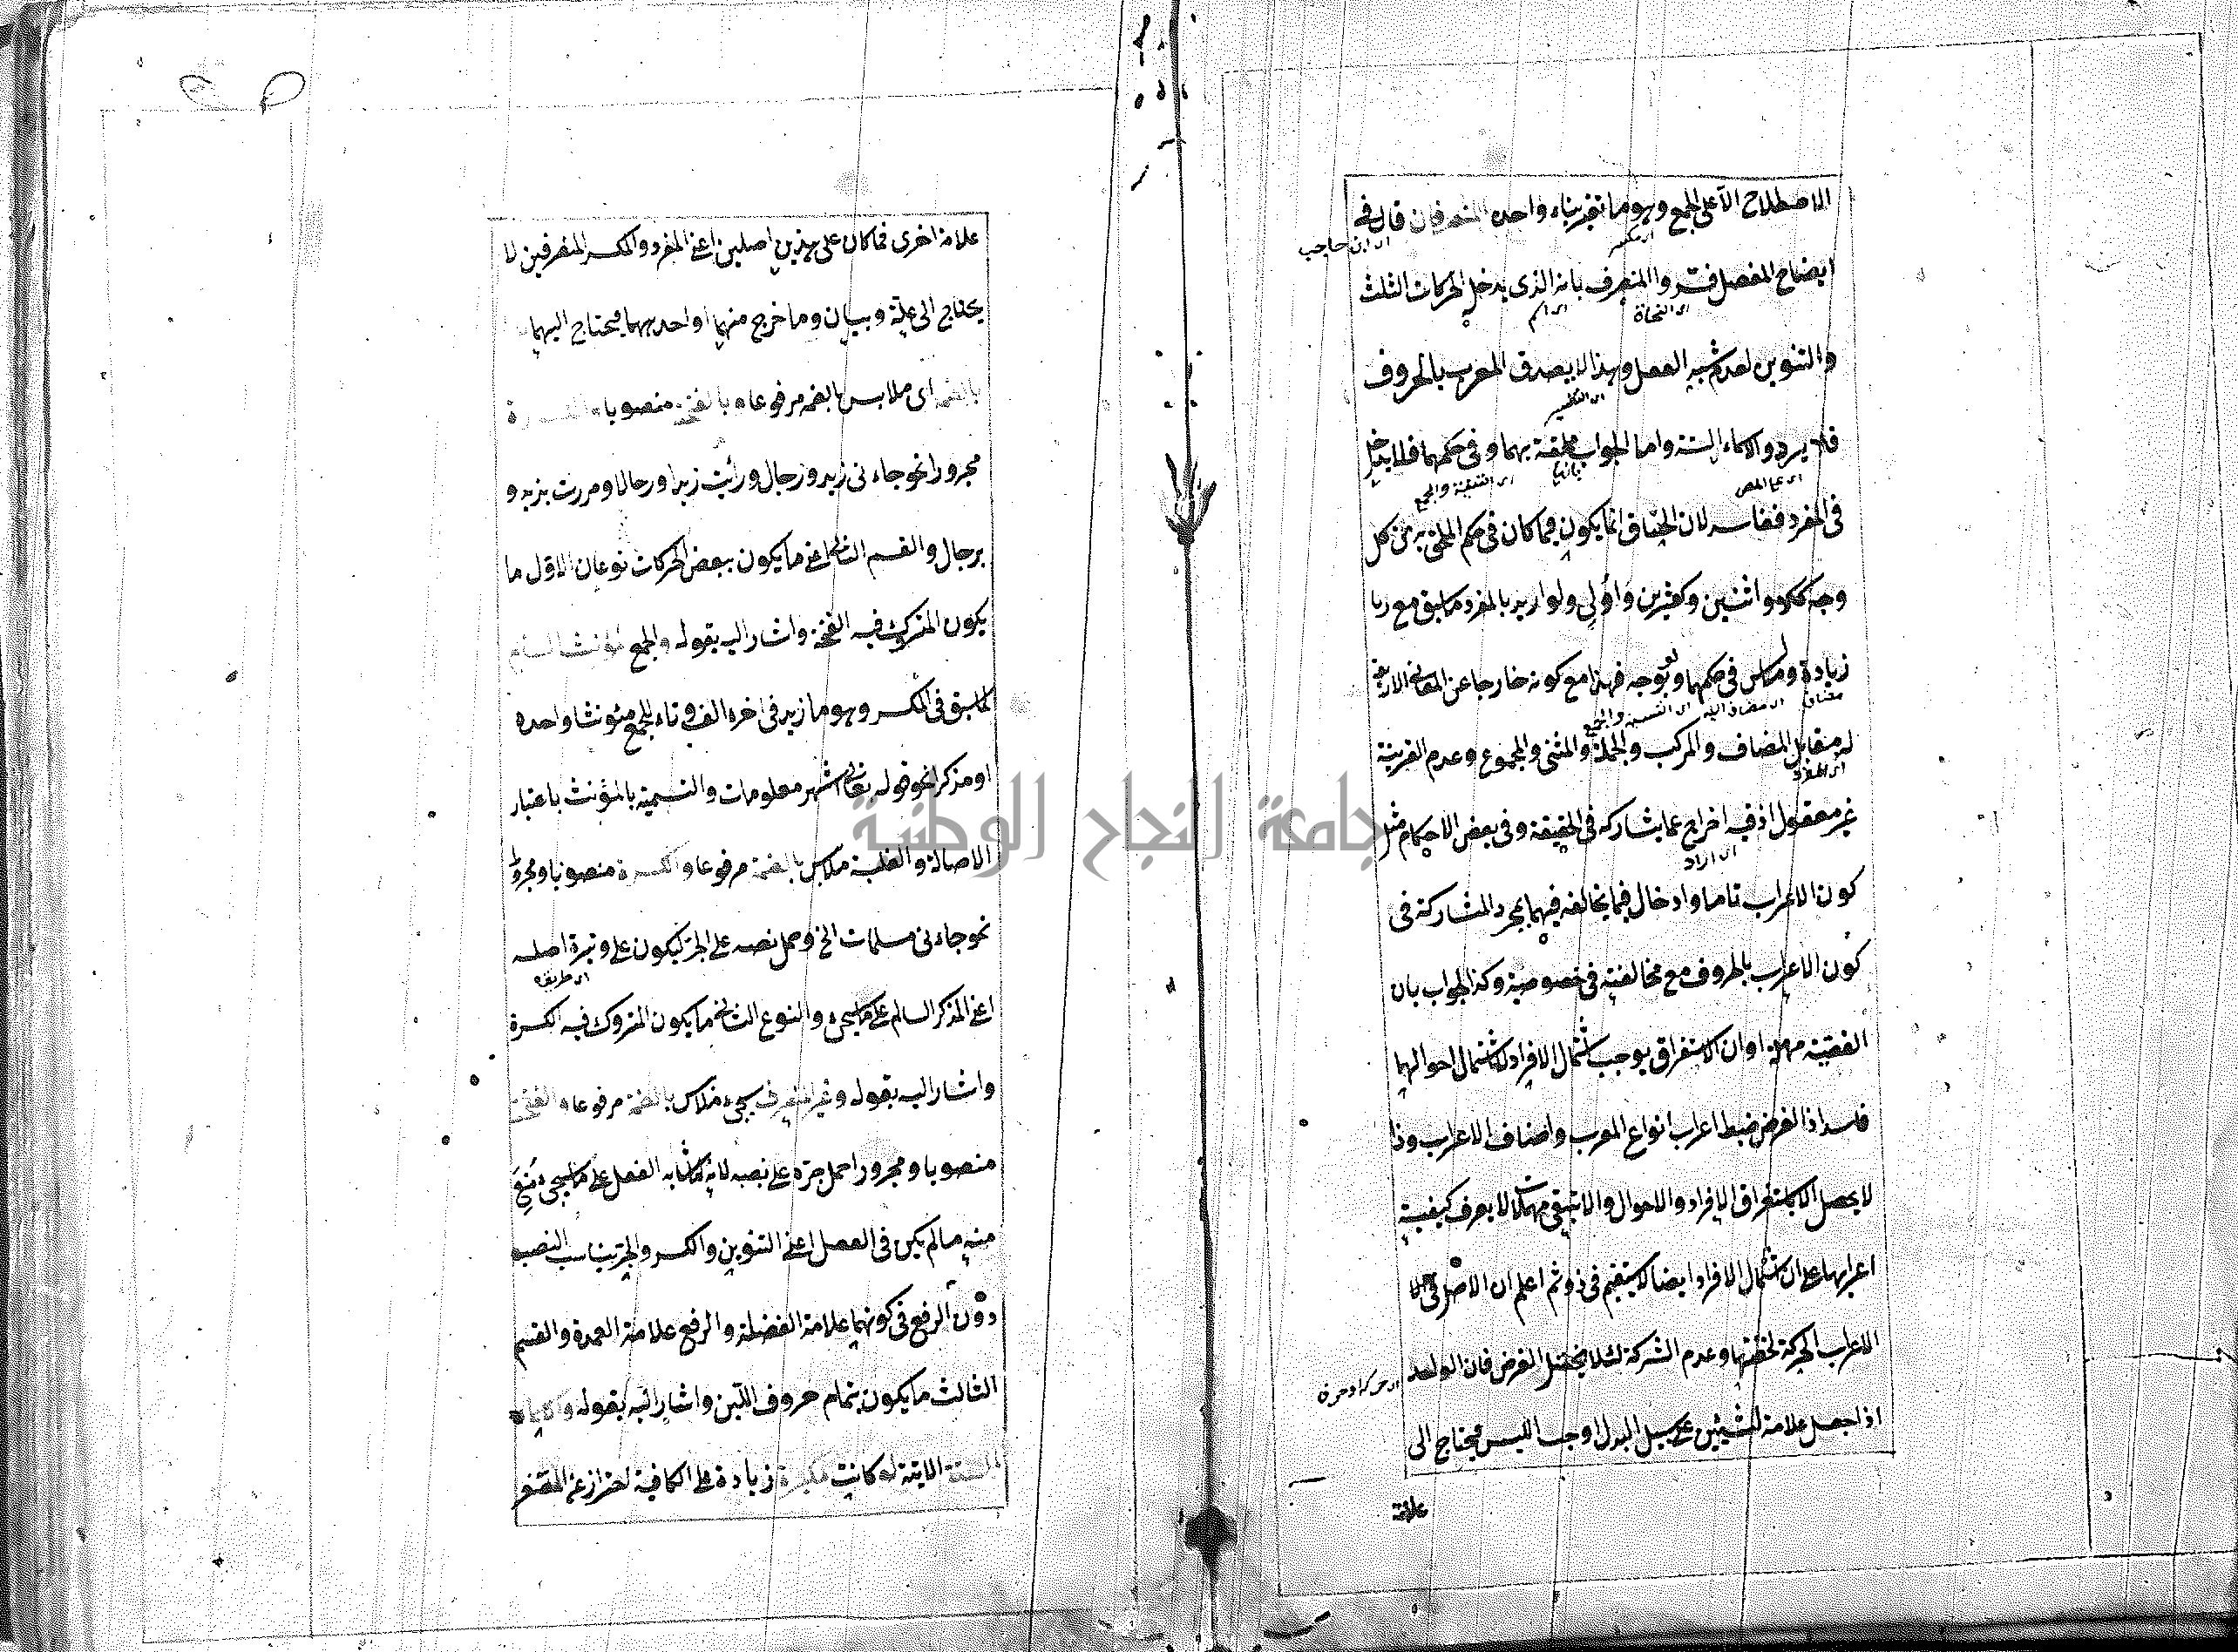 الاصطلاح الا على الجمع وهو ما تغير بناء واحده المنصرفان قال في
اى ابن حاجب
اى مكسر
ايضاح المفصل فسروا المنصرف بانه الذى يدخل الحركات الثلث
اى النحاة
اى اسم
والتنوين لعدم شبه الفعل وهذا لا يصدق المعرب بالحروف
اى التفسير
فلا يرد والاسماء الستة واما الجواب ملحقة بهما وفى حكمهما فلا يدخل
اى على المص
بانها
اى التثنية والجمع
فى المفرد ففاسد لان الحاق انما يكون فيما كان فى حكم الملحق به من كل
وجه ككلا واثنين وكعشرين واولى ولو اريد بالمفرد ما سبق مع زيا
زيادة وما ليس فى حكمهما بوجه فهذا مع كونه خارجا عن المعانى الاربعة
مضاف
اى مضاف اليه
اى التثنية والجمع
له مقابل المضاف والمركب والجملة والمثنى والمجموع وعدم القرينة
اى المفرد
غير معقول اذ فيه اخراج عما يشاركه فى الحقيقة وفى بعض الاحكام مثل
اى اراد
كون الاعراب تاما وادخال فيما يخالفه فيهما بمجرد المشاركة فى
كون الاعراب بالحروف مع مخالفته فى خصوصية وكذا الجواب بان
القضية مهملة او ان الاستغراق يوجب اشتمال الافراد لا اشتمال احوالها
فاسد اذ الغرض ضبط اعراب انواع المعرب واصناف الاعراب وذا
لا يحصل الا باستغراق الافراد والاحوال والا تبقى مهملات لا يعرف كيفية
اعرابها على ان اشتمال الافراد ايضا لا يستقيم فى ذو ثم اعلم ان الاصل فى
الاعراب الحركة لخفتها وعدم الشركة لئلا يختل الغرض فان الواحد
اى حركة او حرف
اذا جعل علامة لشيئين على سبيل البدل اوجب اللبس فيحتاج الى
علامة
علامة اخرى فما كان على هذين اصلين اعنى المفرد والمكسر المنصرفين لا
يحتاج الى علة وبيان وما خرج منهما او احدهما فيحتاج اليهما
بالضمة اى ملابس بالضمة مرفوعا وبالفتحة منصوبا والكسرة
مجرورا نحو جاءنى زيد ورجال ورأيت زيدا ورجالا ومررت بزيد و
برجال والقسم الثانى اعنى ما يكون ببعض الحركات نوعان الاول ما
يكون المتروك فيه الفتحة واشار اليه بقوله والجمع المؤنث السالم
كما سبق فى المكسر وهو ما زيد فى اخره الف وتاء للجمع مؤنثا واحده
او مذكرا نحو قوله تعالى اشهر معلومات والتسمية بالمؤنث باعتبار
الاصالة والغلبة ملابس بالضمة مرفوعا والكسرة منصوبا ومجرورا
نحو جاءنى مسلمات الخ وحمل نصبه على الجر ليكون على وتيرة اصله
اى طريقة
اعنى المذكر السالم على ما سيجىء والنوع الثانى ما يكون المتروك فيه الكسرة
واشار اليه بقوله وغير المنصرف سيجىء ملابس بالضمة مرفوعا والفتحة
منصوبا ومجرورا حمل جره على نصبه لانه لما شابه الفعل على ما سيجىء مُنع
منه ما لم يكن فى الفعل اعنى التنوين والكسر والجر يناسب النصب
دون الرفع فى كونهما علامة الفضلة والرفع علامة العمدة والقسم
الثالث ما يكون بتمام حروف اللين واشار اليه بقوله والاسماء
الستة الاتية لو كانت مكبرة زيادة على الكافية احتراز عن المصغر
جامعة النجاح الوطنية